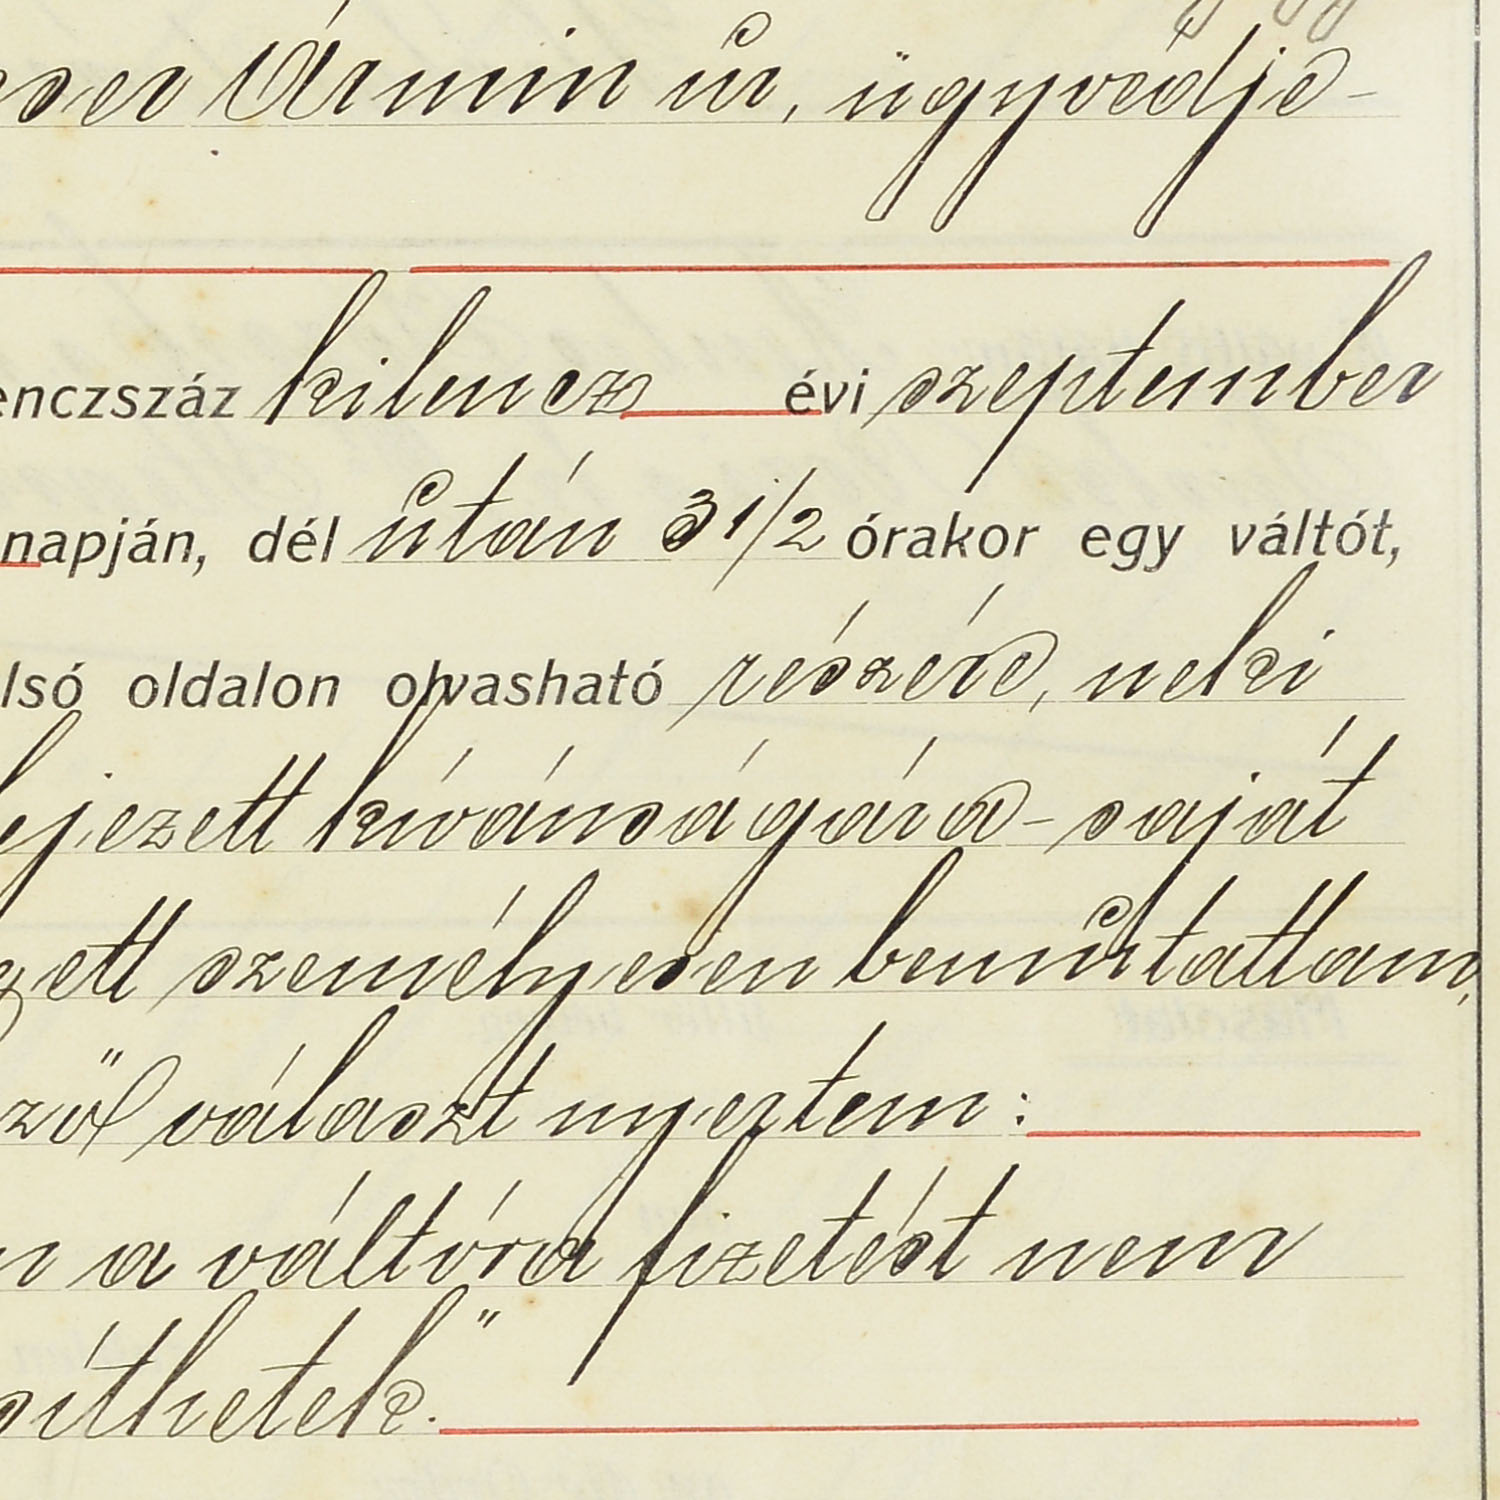 eser Ármin úr, ügyvédje-
enczszáz kilencz évi szeptember
napján, dél után 3 1/2 órakor egy váltót,
lsó oldalon olvasható részére, neki
ejezett kívánságára - saját
zett személyesen bemutattam,
ző választ nyertem:
n a váltóra fizetést nem
síthetek."